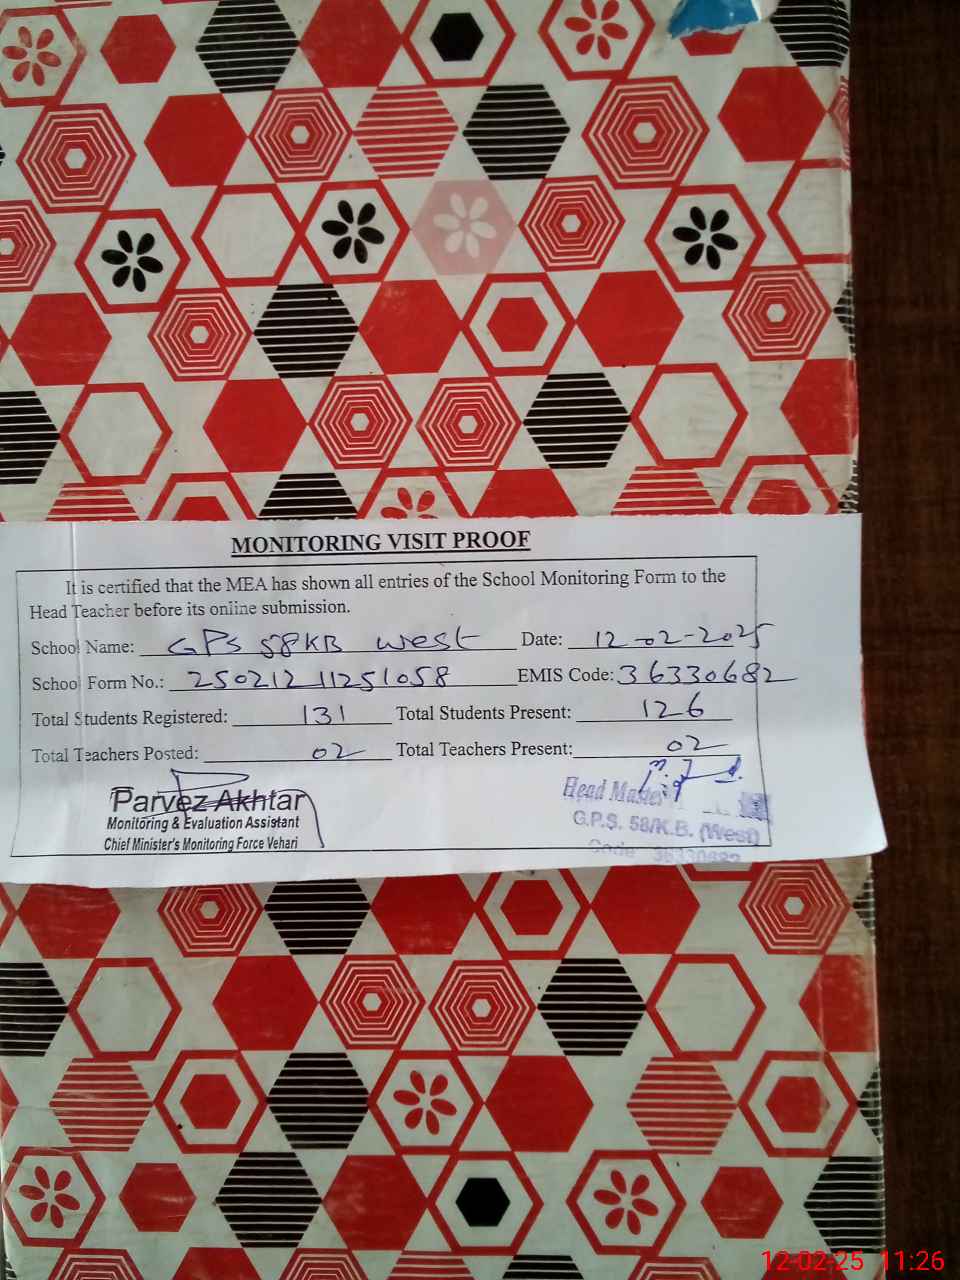 MONITORING VISIT PROOF
It is certified that the MEA has shown all entries of the School Monitoring Form to the
Head Teacher before its online submission.
School Name: GPS 58KB West Date: 12-02-2025
School Form No.: 25021211251058 EMIS Code: 36330682
Total Students Registered: 131 Total Students Present: 126
Total Teachers Posted: 02 Total Teachers Present: 02
Parvez Akhtar
Monitoring & Evaluation Assistant
Chief Minister's Monitoring Force Vehari
Head Master
G.P.S. 58/K.B. (West)
Code 36330682
12-02-25 11:26